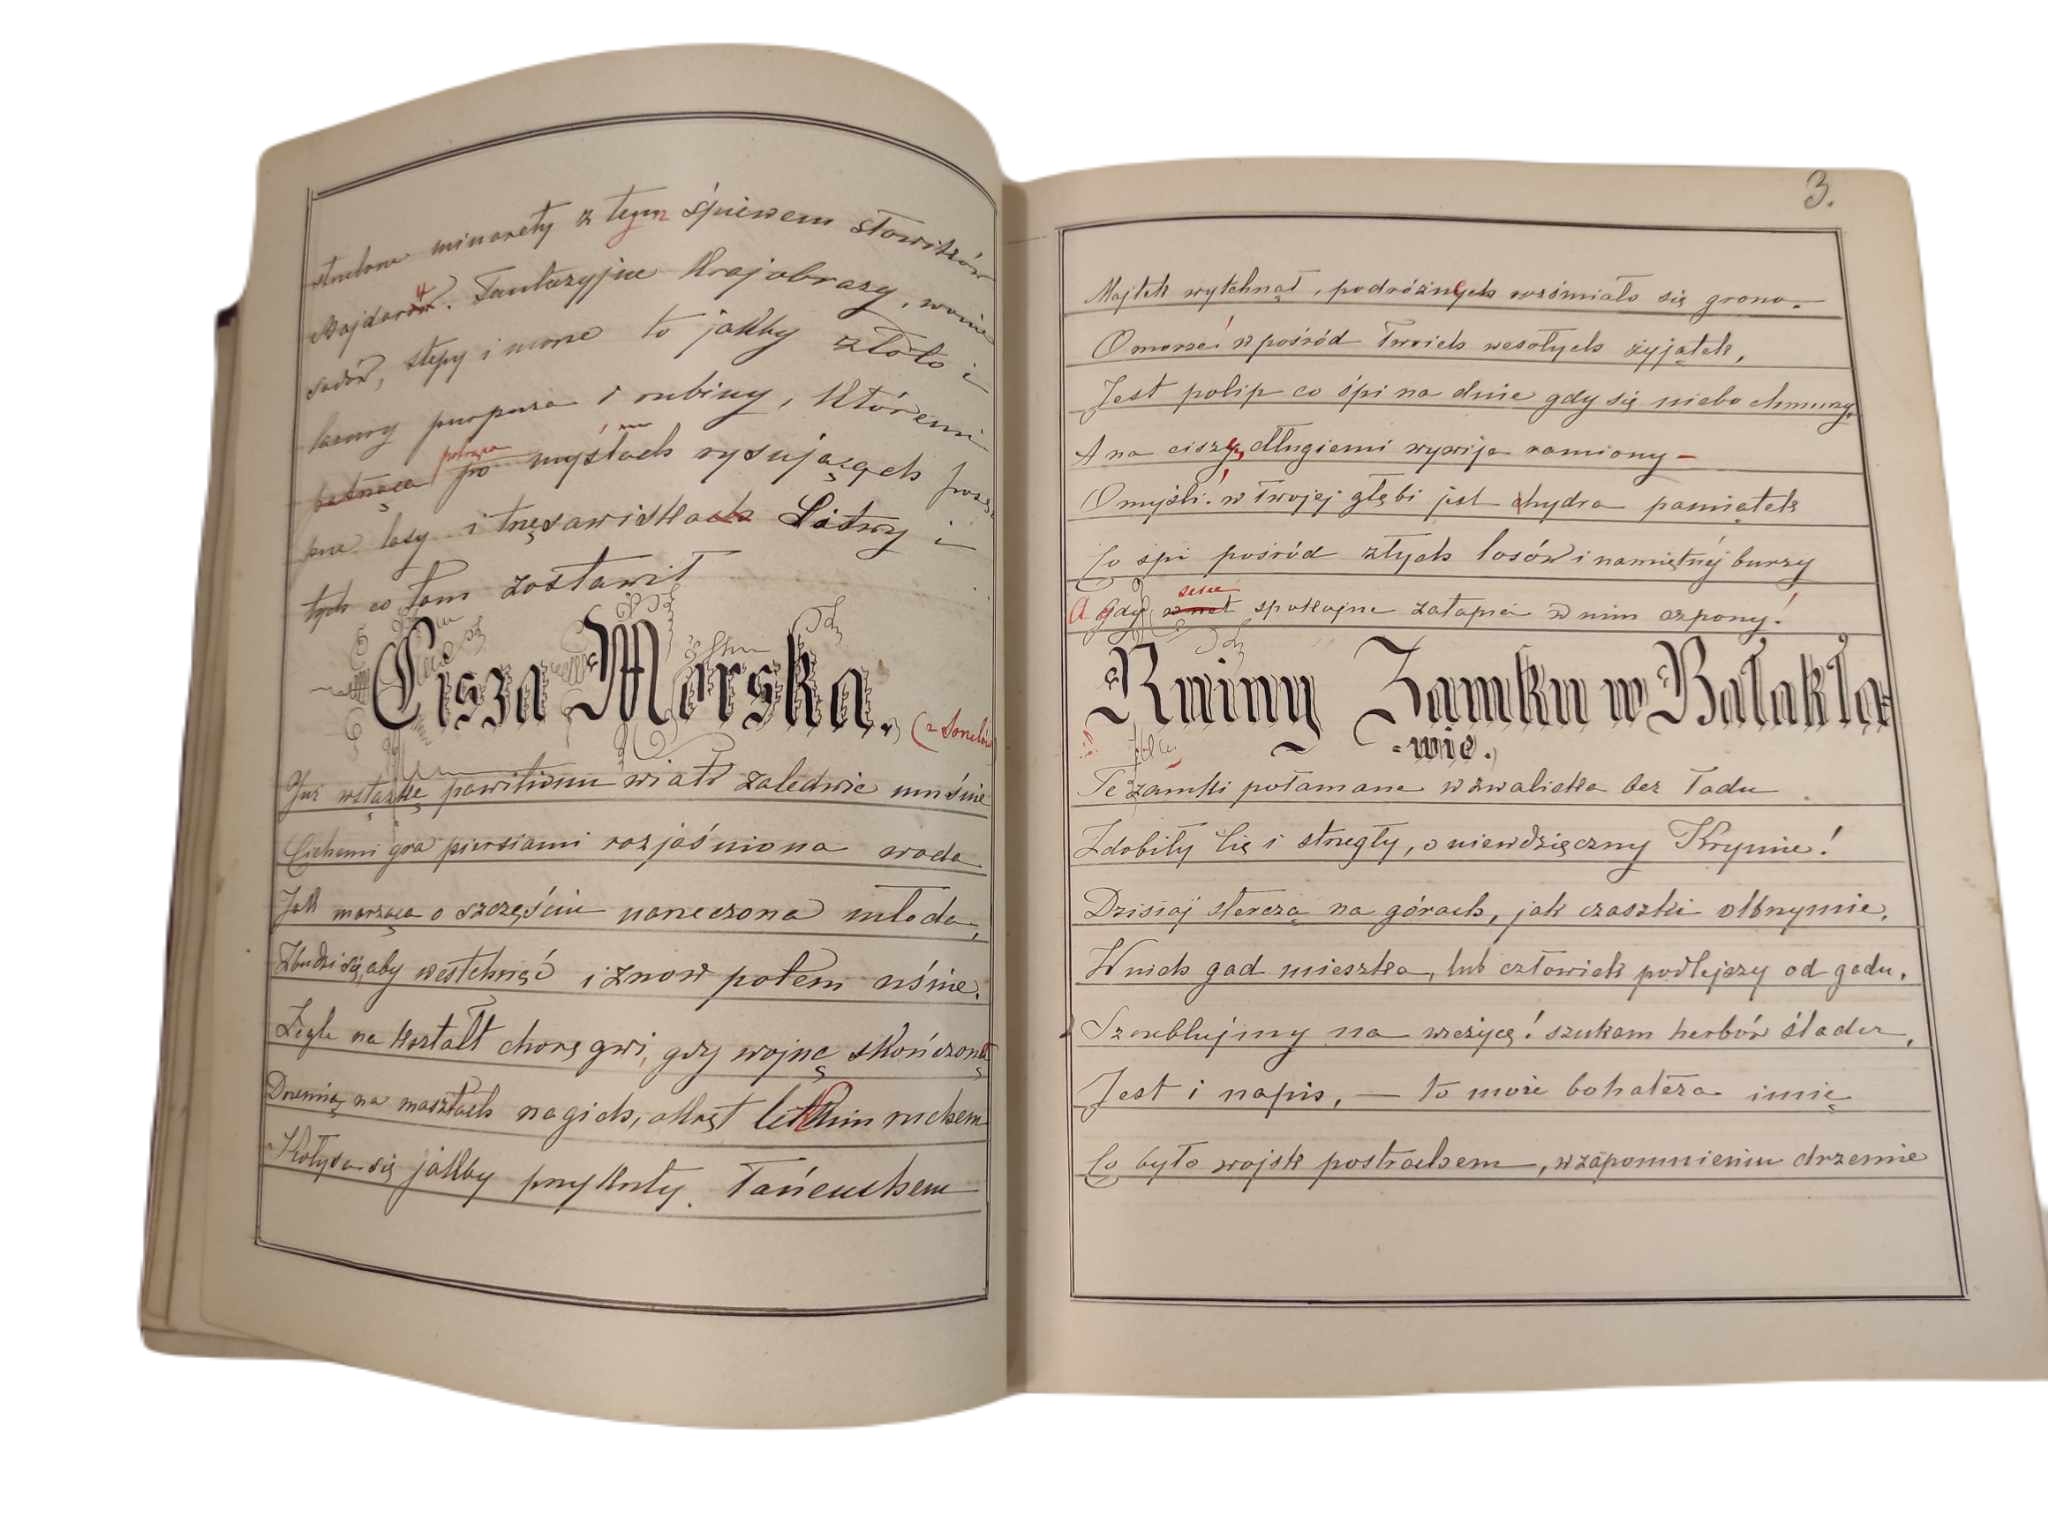 minarety z tym śpiewem słowików
Bajdarów. Fantazyjne krajobrazy, wonie
sadów, stepy i morze to jakby złoto i
lazury purpura i rubiny, któremi
potrąca
po myślach rysujących posę-
pne lasy i trzęsawiskach Litwy i
tych co tam zostawił
Cisza Morska.
(z Sonetów
Już wstążkę pawilionu wiatr zaledwie muśnie
Cichemi gra piersiami rozjaśniona woda
Jak marząca o szczęściu narzeczona młoda,
Zbudzi się, aby westchnąć i znow potem uśnie.
Żegle na kształt chorągwi, gdy wojnę skończono
Drzemią na masztach nagich, okręt lekkim ruchem
Kołysa się jakby przykuty łańcuchem
3.
Majtek wytchnął, podróżnych rozśmiało się grono.
O morze! wpośród Twoich wesołych żyjątek,
Jest polip co śpi na dnie gdy się niebo chmurzy,
A na ciszę, długiemi wywija ramiony –
O myśli! w twojej głębi jest hydra pamiątek
Co śpi pośród złych losów i namiętnéj burzy
serce
A Gdy spokojne zatapia w nim szpony!
Ruiny Zamku w Bałakła-
-wie.
Te zamki połamane w zwaliska bez ładu
Zdobiły Cię i strzegły, o niewdzięczny Krymie!
Dzisiaj sterczą na górach, jak czaszki olbrzymie,
W nich gad mieszka, lub człowiek podlejszy od gadu.
Szczeblujmy na wieżycę! szukam herbów śladu,
Jest i napis, — to może bohatera imię
Co było wojsk postrachem, w zapomnieniu drzemie